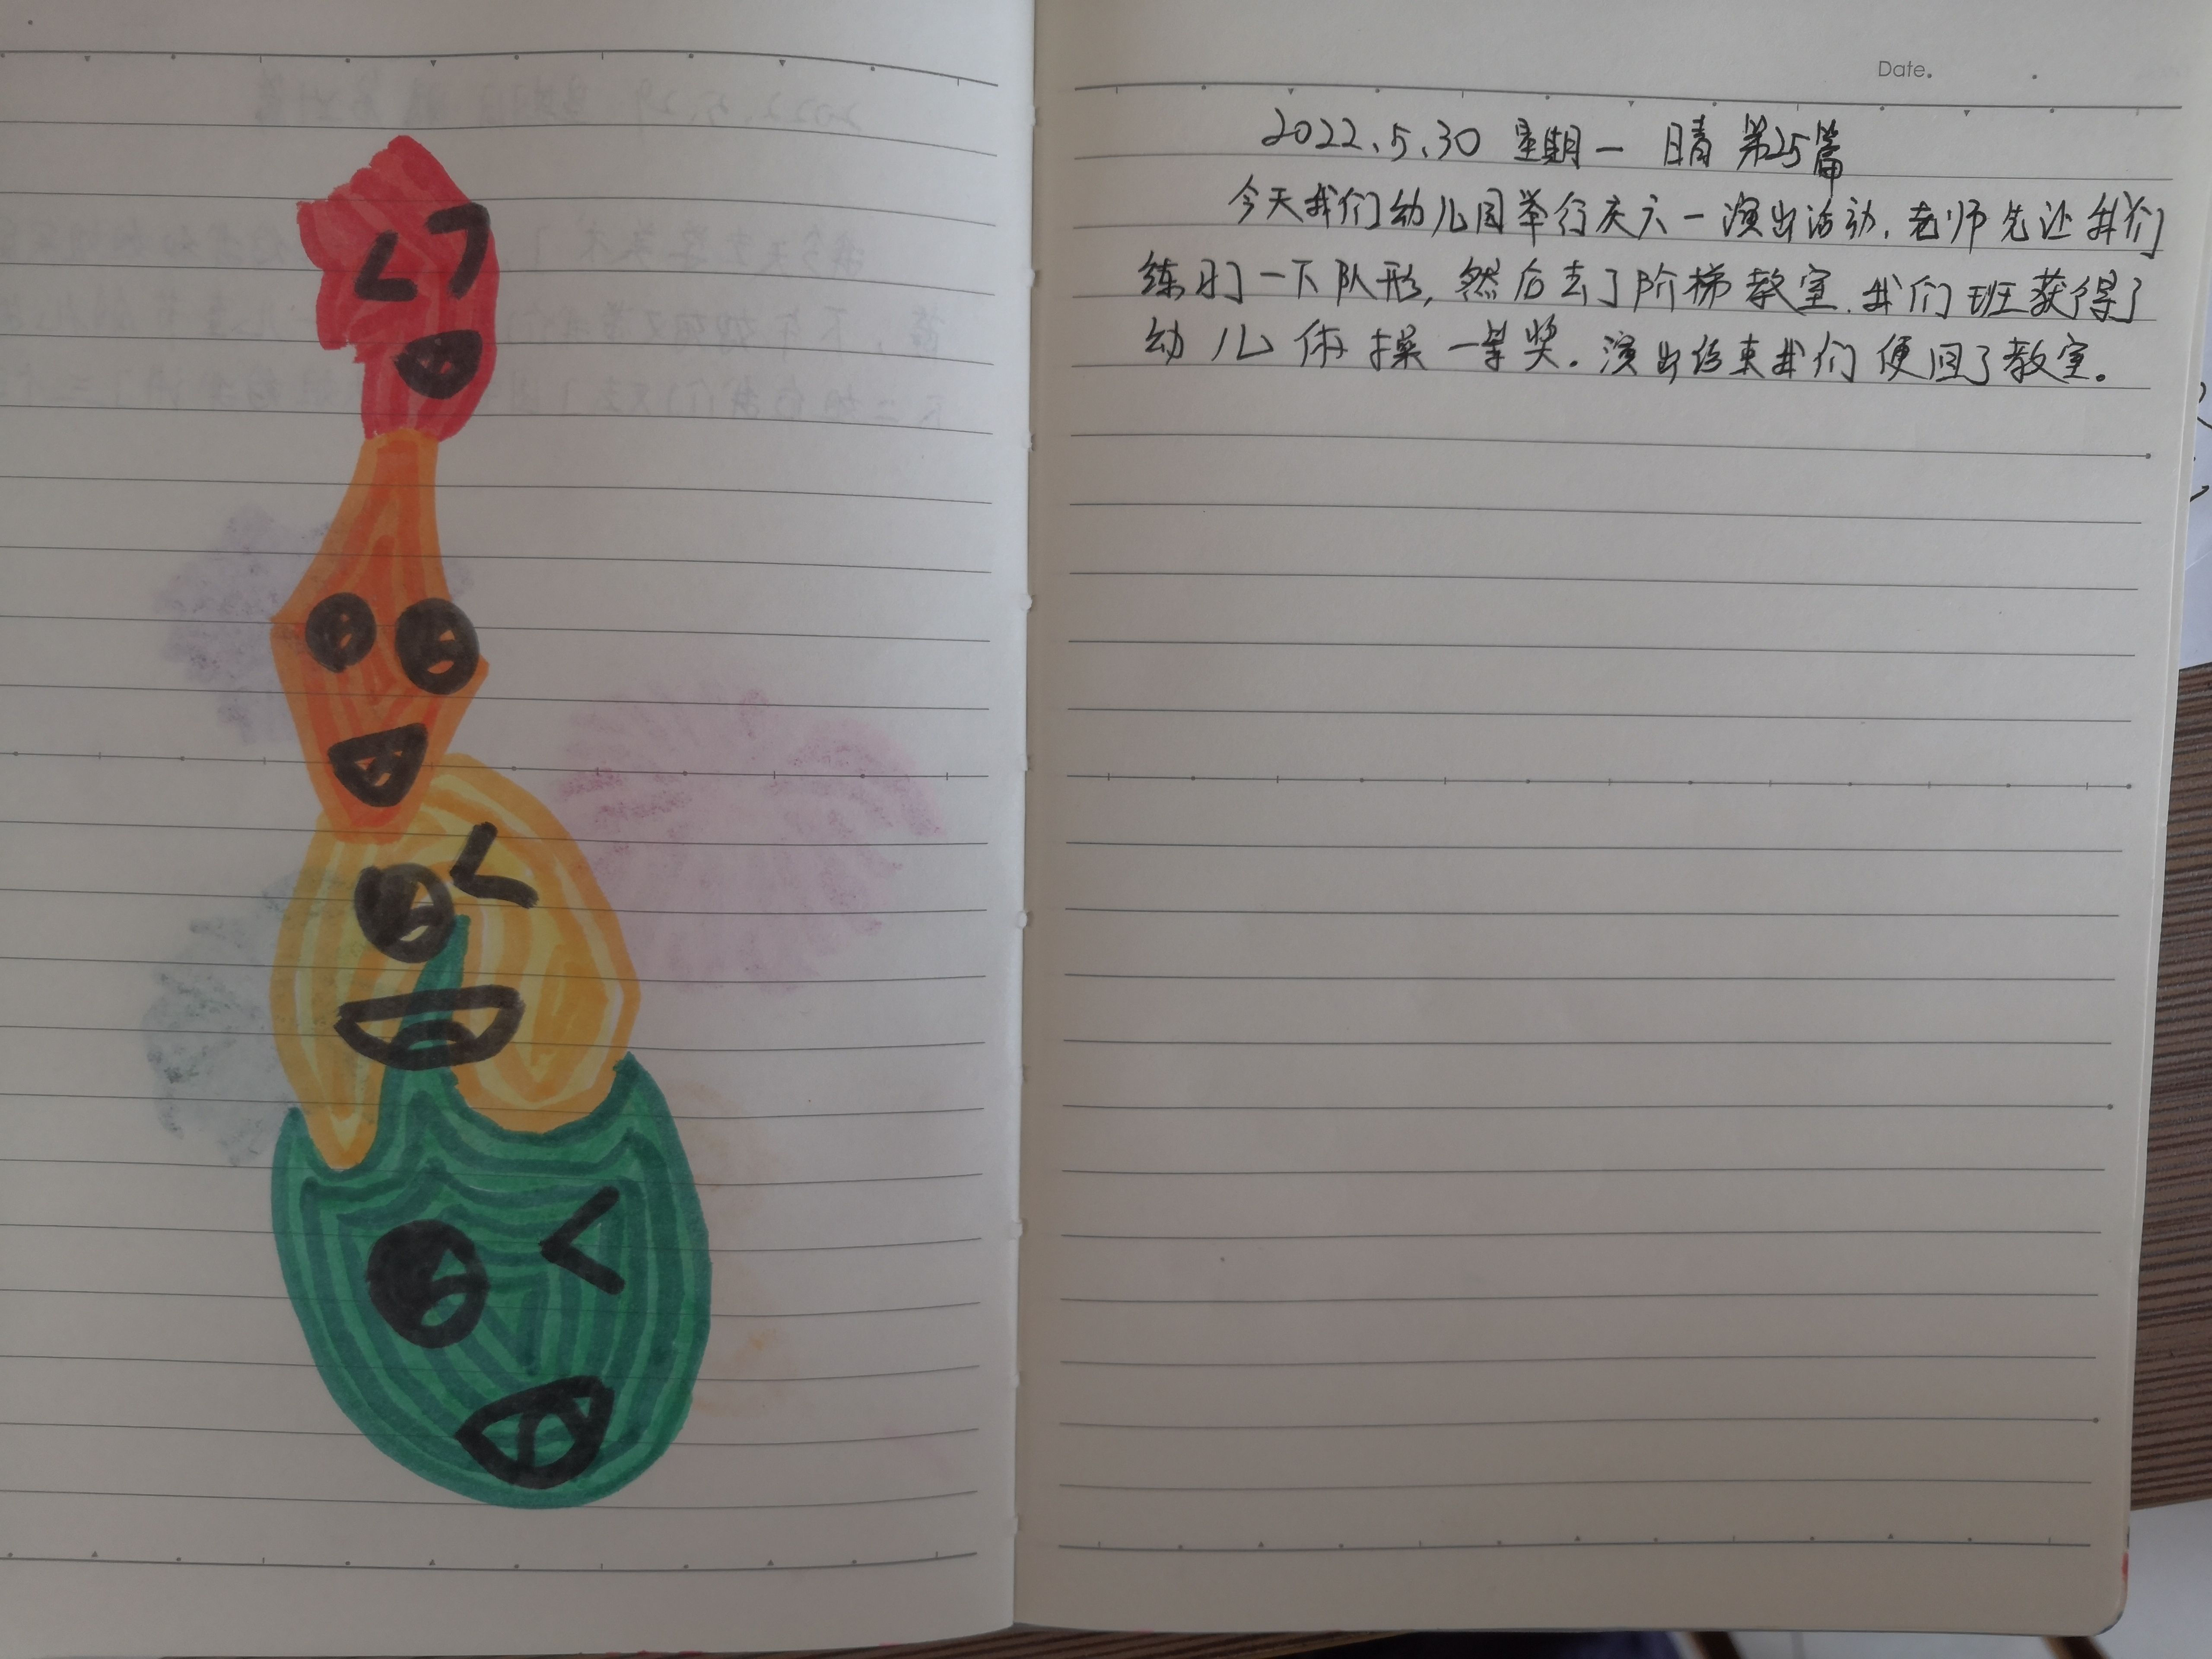 Date.
2022.5.30 星期一 晴 第25篇
今天我们幼儿园举行庆六一演出活动,老师先让我们
练习了一下队形,然后去了阶梯教室.我们班获得了
幼儿体操一等奖.演出结束我们便回了教室。